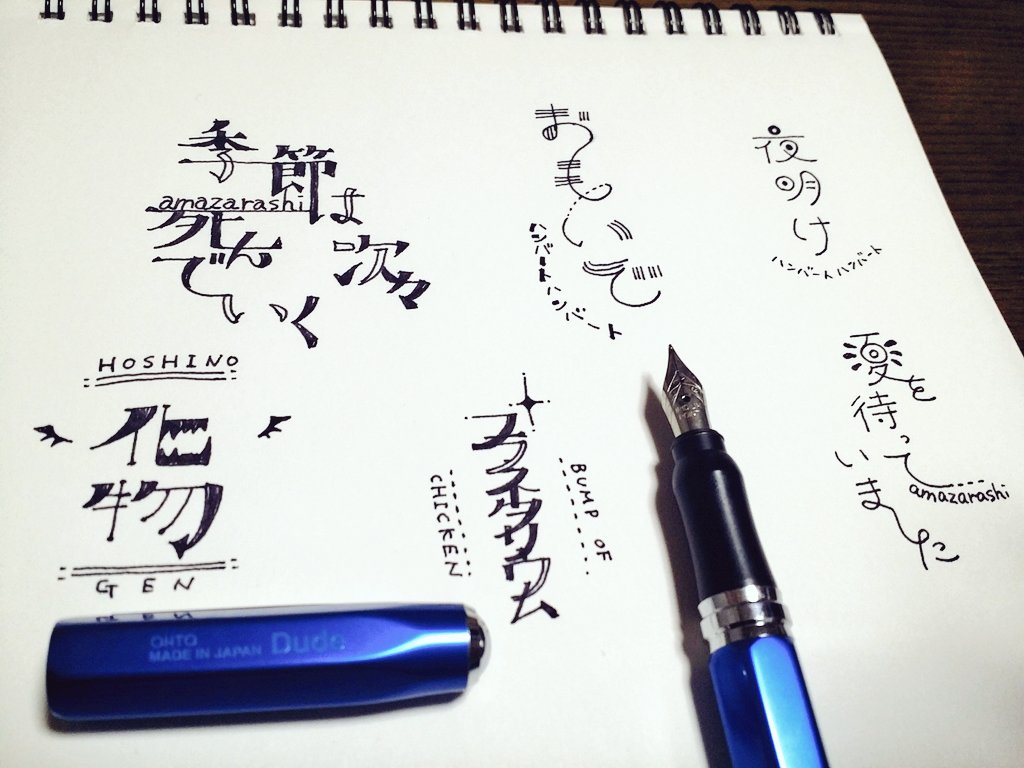 季節は
次々
死んでいく
amazarashi
おもいで
ハンバートハンバート
夜明け
ハンバートハンバート
HOSHINO
化物
GEN
プラネタリウム
BUMP OF
CHICKEN
夏を
待って
いました
amazarashi
OHTO
MADE IN JAPAN Dude